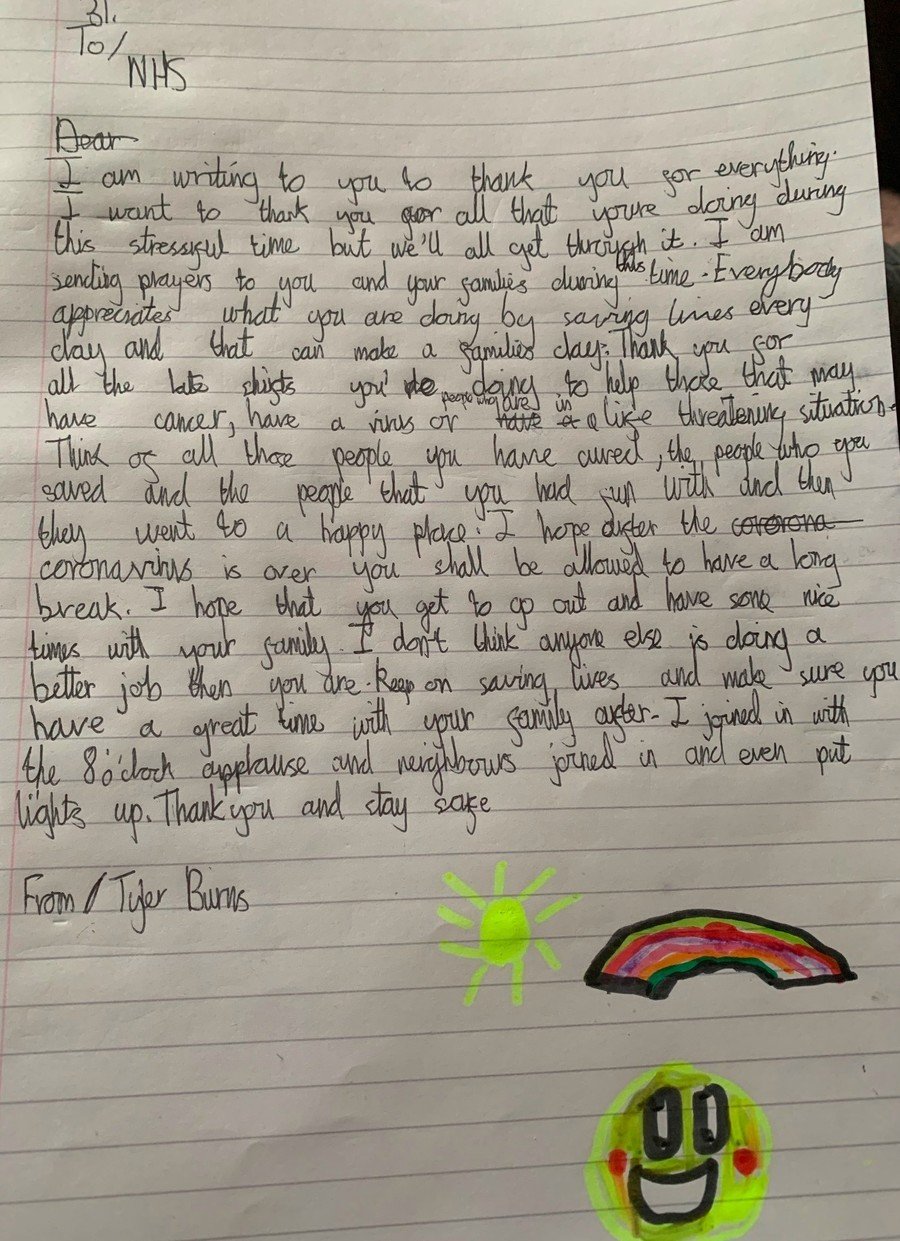 31.
To/
NHS
Dear
I am writing to you to thank you for everything.
I want to thank you for all that youre doing during
this stressful time but we'll all get through it. I am
sending prayers to you and your families during this time. Everybody
appreciates what you are doing by saving lives every
day and that can make a families day. Thank you for
all the late shifts you're doing to help those that may
have cancer, have a virus or people who are in a life threatening situation.
Think of all those people you have cured, the people who you
saved and the people that you had fun with and then
they went to a happy place. I hope after the cororona
coronavirus is over you shall be allowed to have a long
break. I hope that you get to go out and have some nice
times with your family. I don't think anyone else is doing a
better job then you are. Keep on saving lives and make sure you
have a great time with your family after. I joined in with
the 8 o'clock applause and neighbours joined in and even put
lights up. Thank you and stay safe
From / Tyler Burns